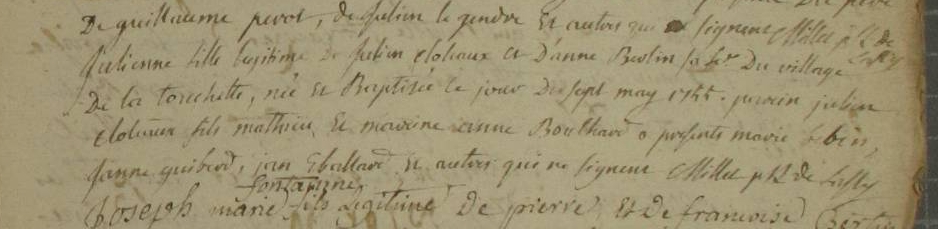 De guillaume perot, de Julien le gendre Et autres qui ne signent Millet p.
Julienne fille legitime De Julien Clolaux et Danne Berlin sa fe. Du village
De la touchette, née Et Baptisée le jour Dixsept may 1755. parain julien
clolaux fils mathieu, Et maraine anne Bouthard presents marie
Janne guiberd, jan Et autres qui ne signent Millet p R de
fontaine
Joseph marie fils Legitime De pierre Et De francoise